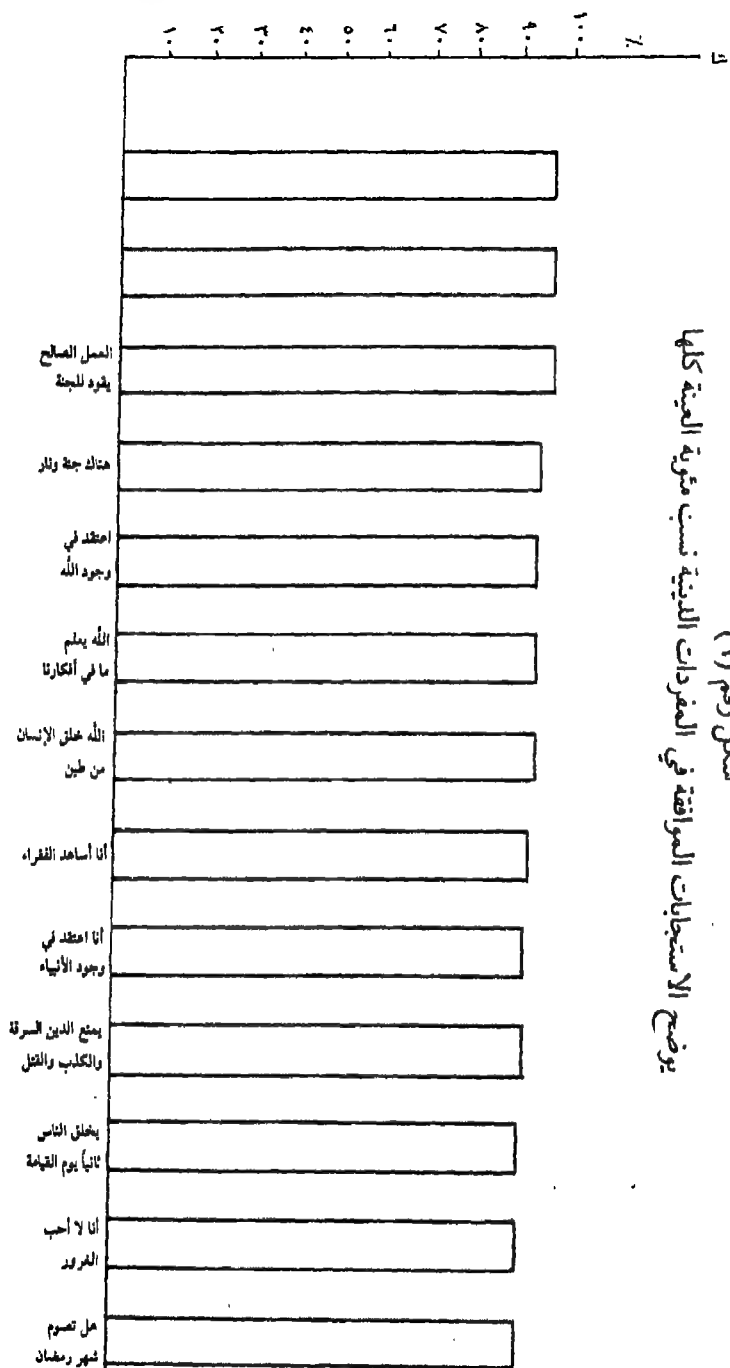 شكل رقم (١)
يوضح الاستجابات الموافقة في المفردات الدينية نسب مئوية العينة كلها
ك
٪
١٠٠
٩٠
٨٠
٧٠
٦٠
٥٠
٤٠
٣٠
٢٠
١٠
العمل الصالح
يقود للجنة
هناك جنة ونار
اعتقد في
وجود الله
الله يعلم
ما في أفكارنا
الله خلق الإنسان
من طين
أنا أساعد الفقراء
أنا اعتقد في
وجود الأنبياء
يمنع الدين السرقة
والكذب والقتل
يخلق الناس
ثانياً يوم القيامة
أنا لا أحب
الغرور
هل تصوم
شهر رمضان